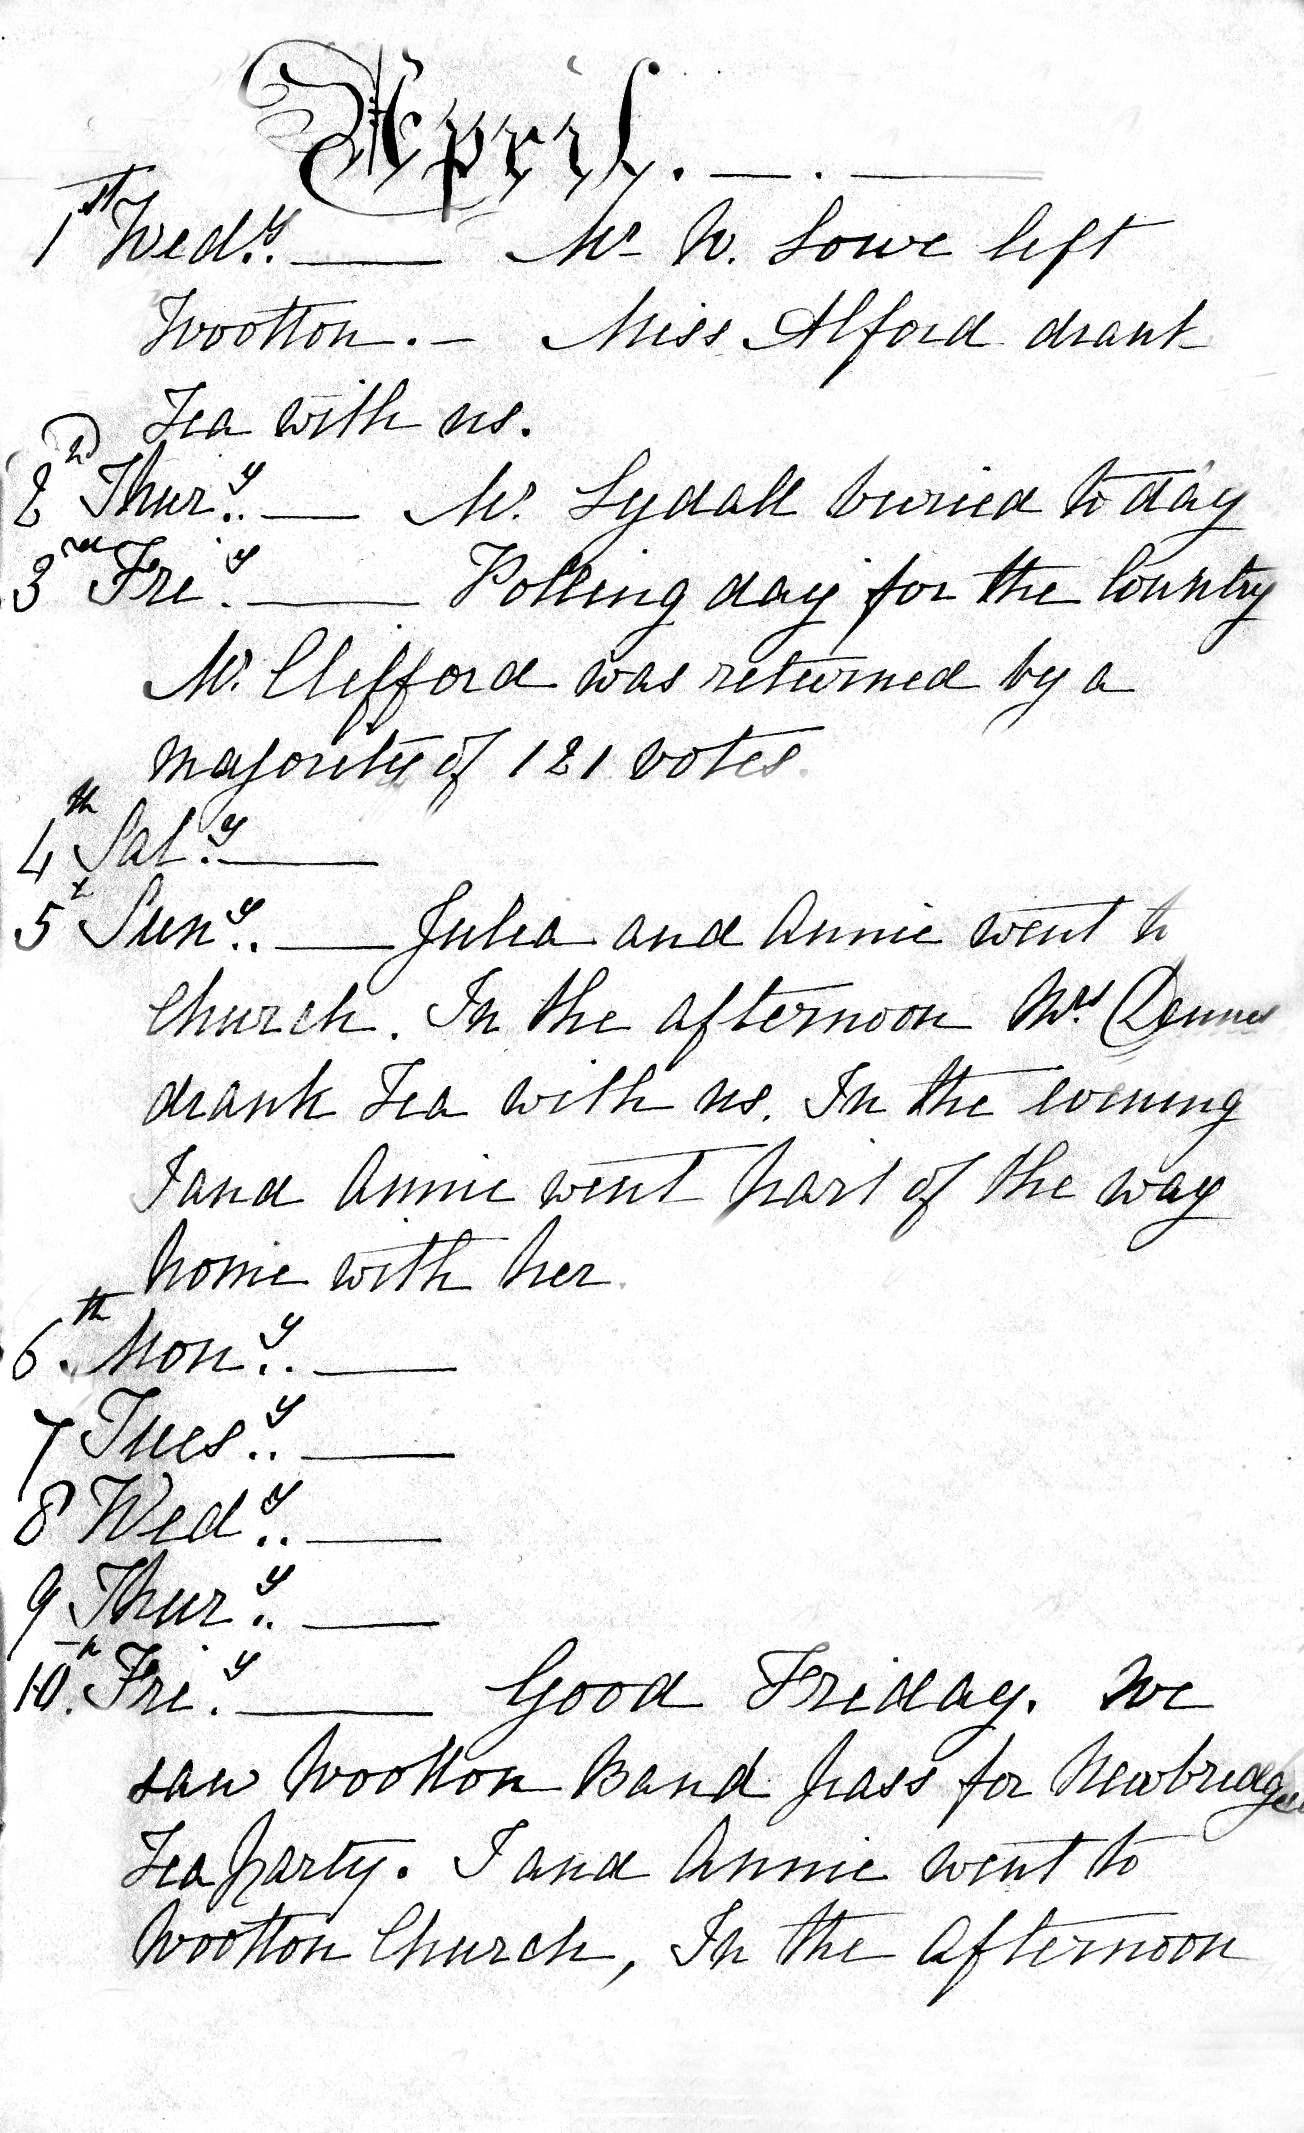 April. — . —
1st Wedy. — Mr W. Lowe left
Wootton. — Miss Alford drank
Tea with us.
2nd Thury. — Mr. Lydall buried to day
3rd Friy. — Polling day for the Country
Mr. Clifford was returned by a
majority of 121 votes.
4th Saty. —
5th Suny. — Julia and Annie went to
Church. In the afternoon Mrs
drank Tea with us. In the evening
I and Annie went part of the way
home with her.
6th Mony. —
7 Tuesy. —
8 Wedy. —
9 Thury. —
10th. Friy. — Good Friday. We
saw Wootton Band pass for Newbridge
Tea party. I and Annie went to
Wootton Church, In the afternoon